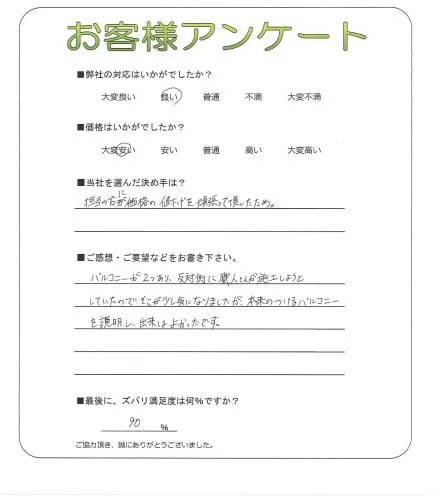 お客様アンケート
■弊社の対応はいかがでしたか？
大変良い 良い 普通 不満 大変不満
■価格はいかがでしたか？
大変安い 安い 普通 高い 大変高い
■当社を選んだ決め手は？
担当の方に価格の値下げを頑張って頂したため。
■ご感想・ご要望などをお書き下さい。
バルコニーが2つあり、反対側に職人さんが施工しようと
していたので、そこが少し気になりましたが、本来のつけるバルコニー
を説明し、出来はよかったです。
■最後に、ズバリ満足度は何％ですか？
90 ％
ご協力頂き、誠にありがとうございました。